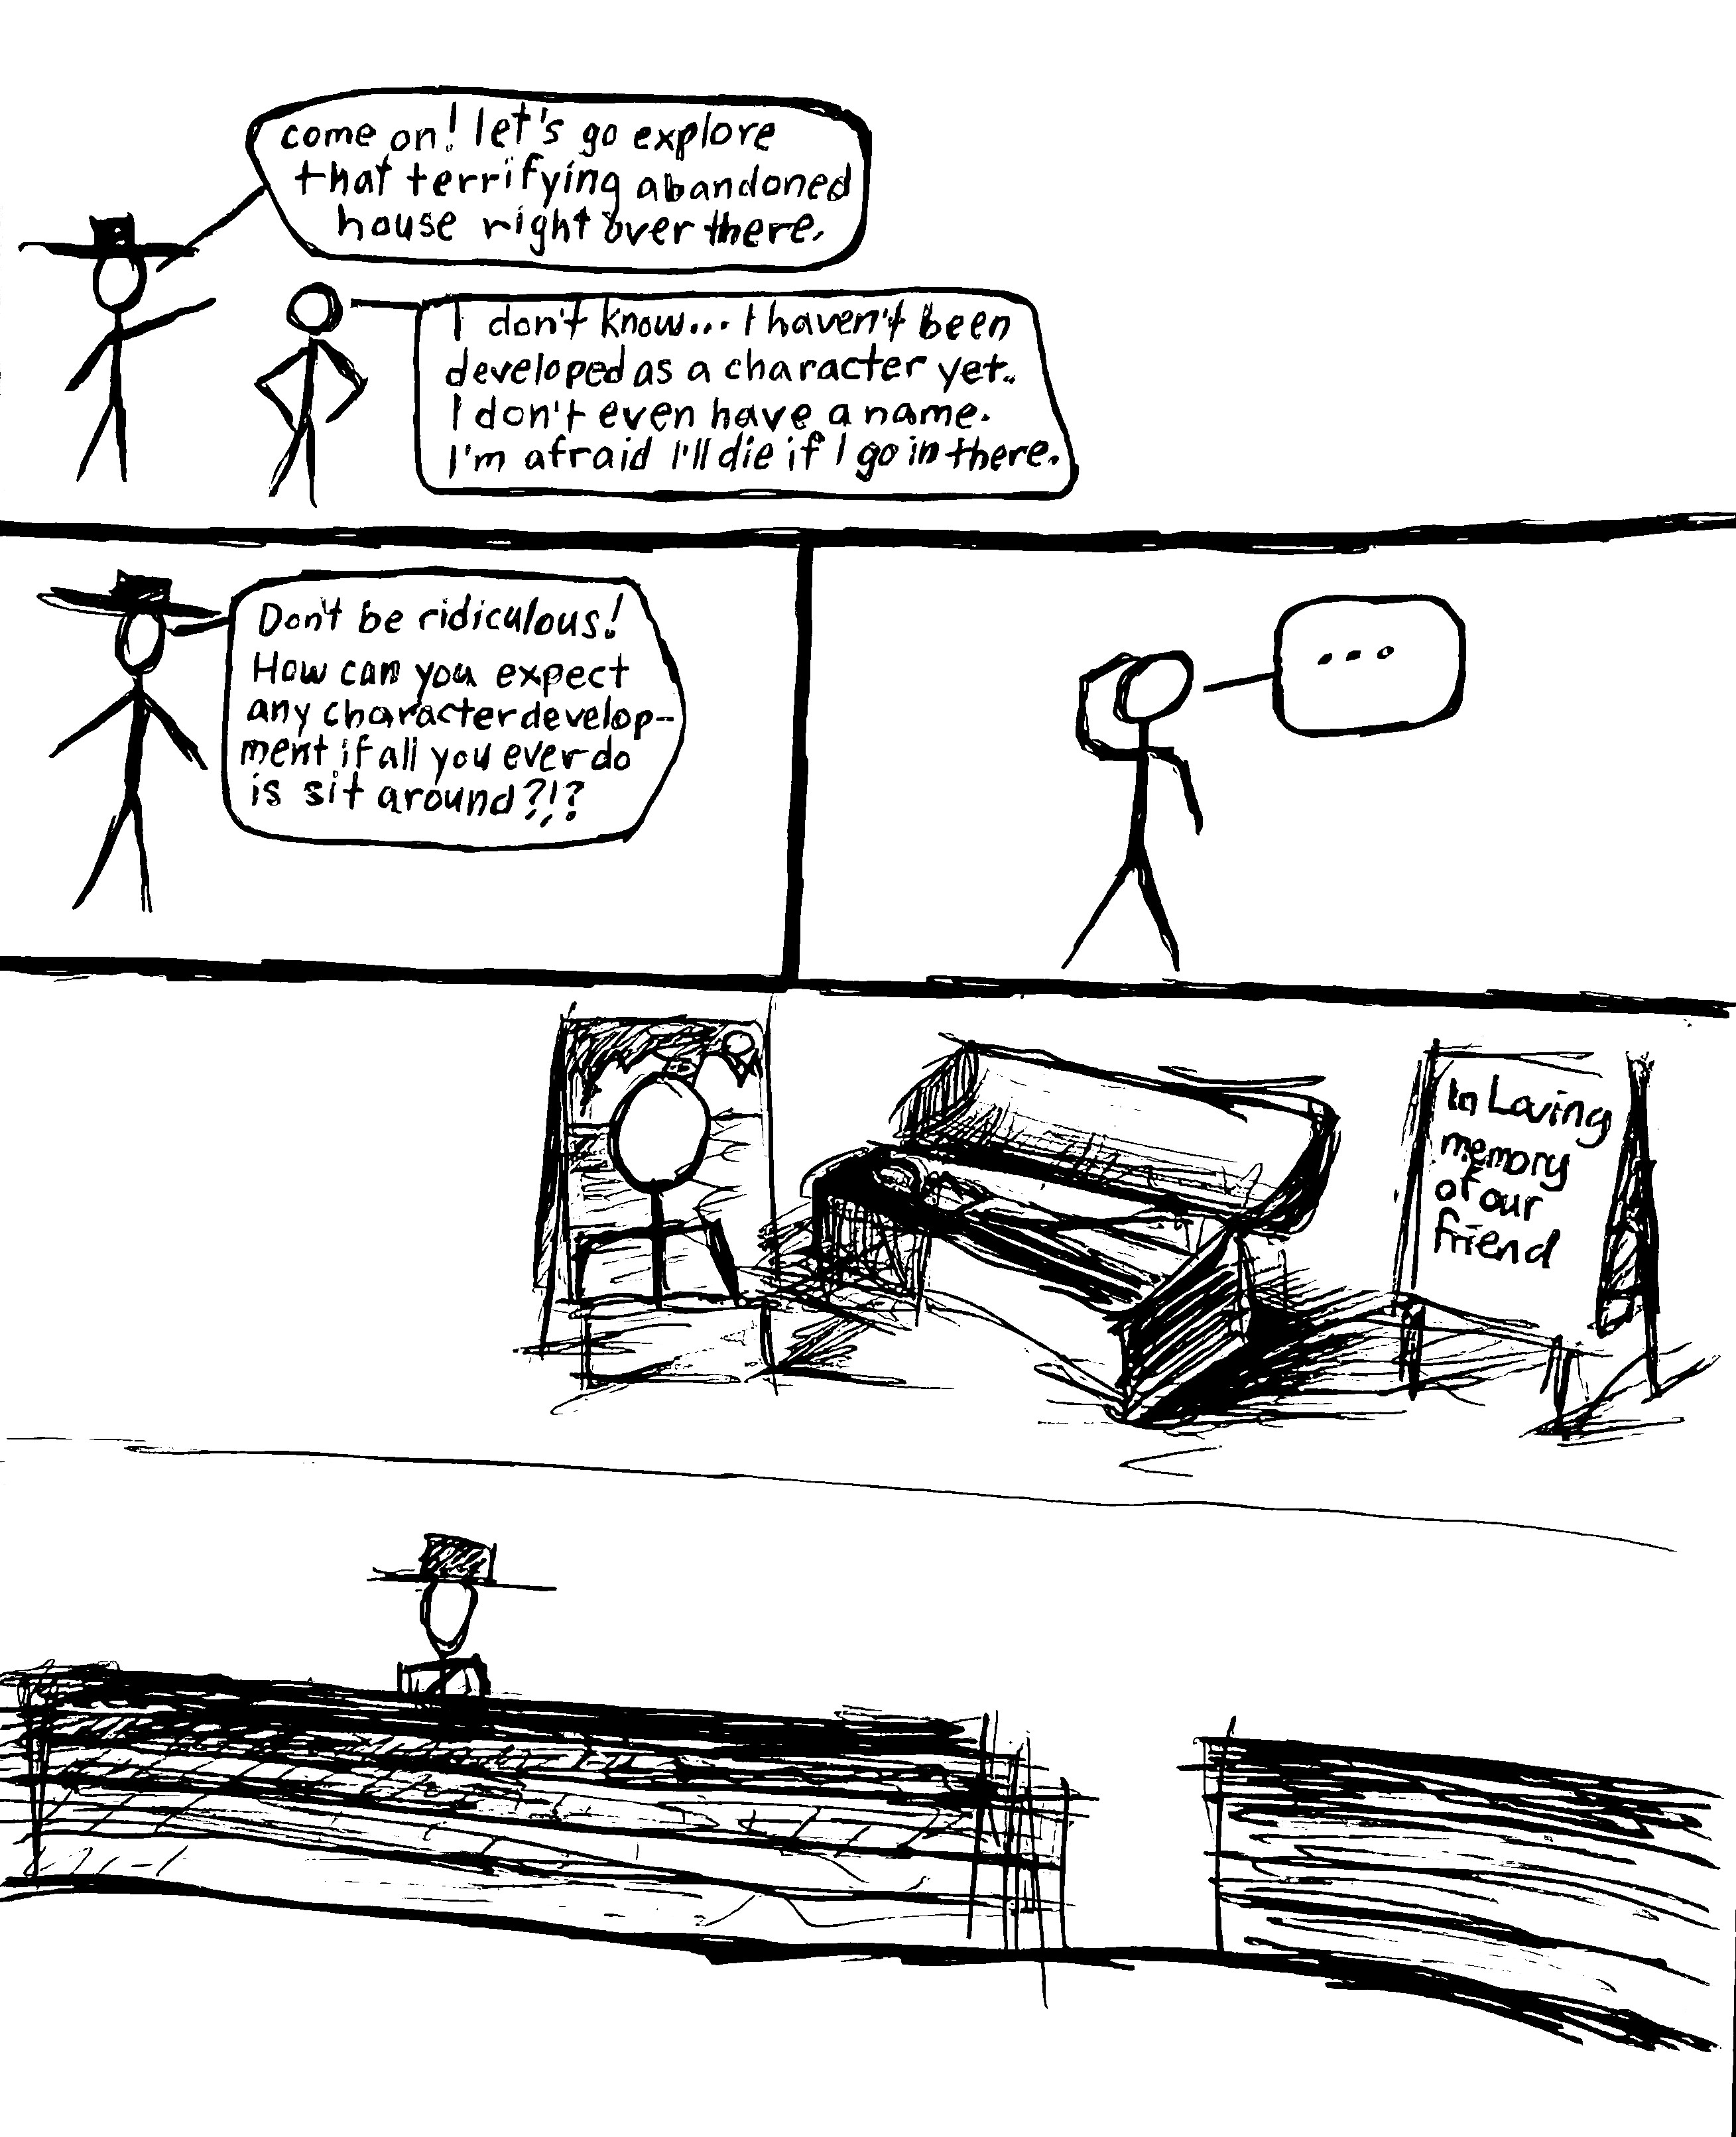 come on! let's go explore
that terrifying abandoned
house right over there.
I don't know... I haven't been
developed as a character yet..
I don't even have a name.
I'm afraid I'll die if I go in there.
Don't be ridiculous!
How can you expect
any character develop-
ment if all you ever do
is sit around?!?
...
In Loving
memory
of our
friend